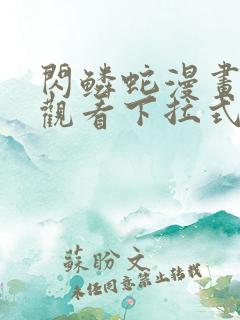 閃鱗蛇漫畫
觀看下拉式
蘇盼文
未经同意禁止转载